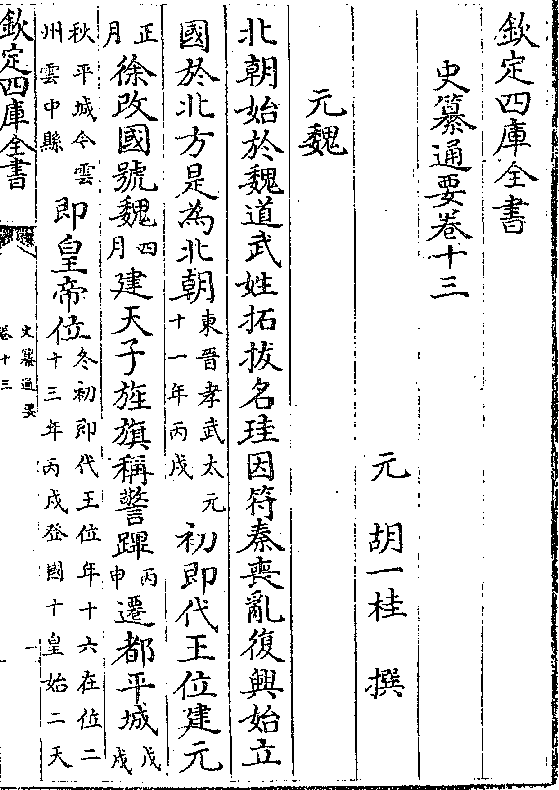 欽定四庫全書
史纂通要卷十三
元 胡一桂 撰
元魏
北朝始於魏道武姓拓拔名珪因符秦喪亂復興始立
國於北方是為北朝東晉孝武太元十一年丙戌初即代王位建元
正月徐改國號魏四月建天子旌旗稱警蹕丙申遷都平城戊戌
秋平城令雲州雲中縣即皇帝位冬初即代王位年十六在位二十三年丙戌登國十皇始二天
欽定四庫全書
史纂通要
卷十三
一